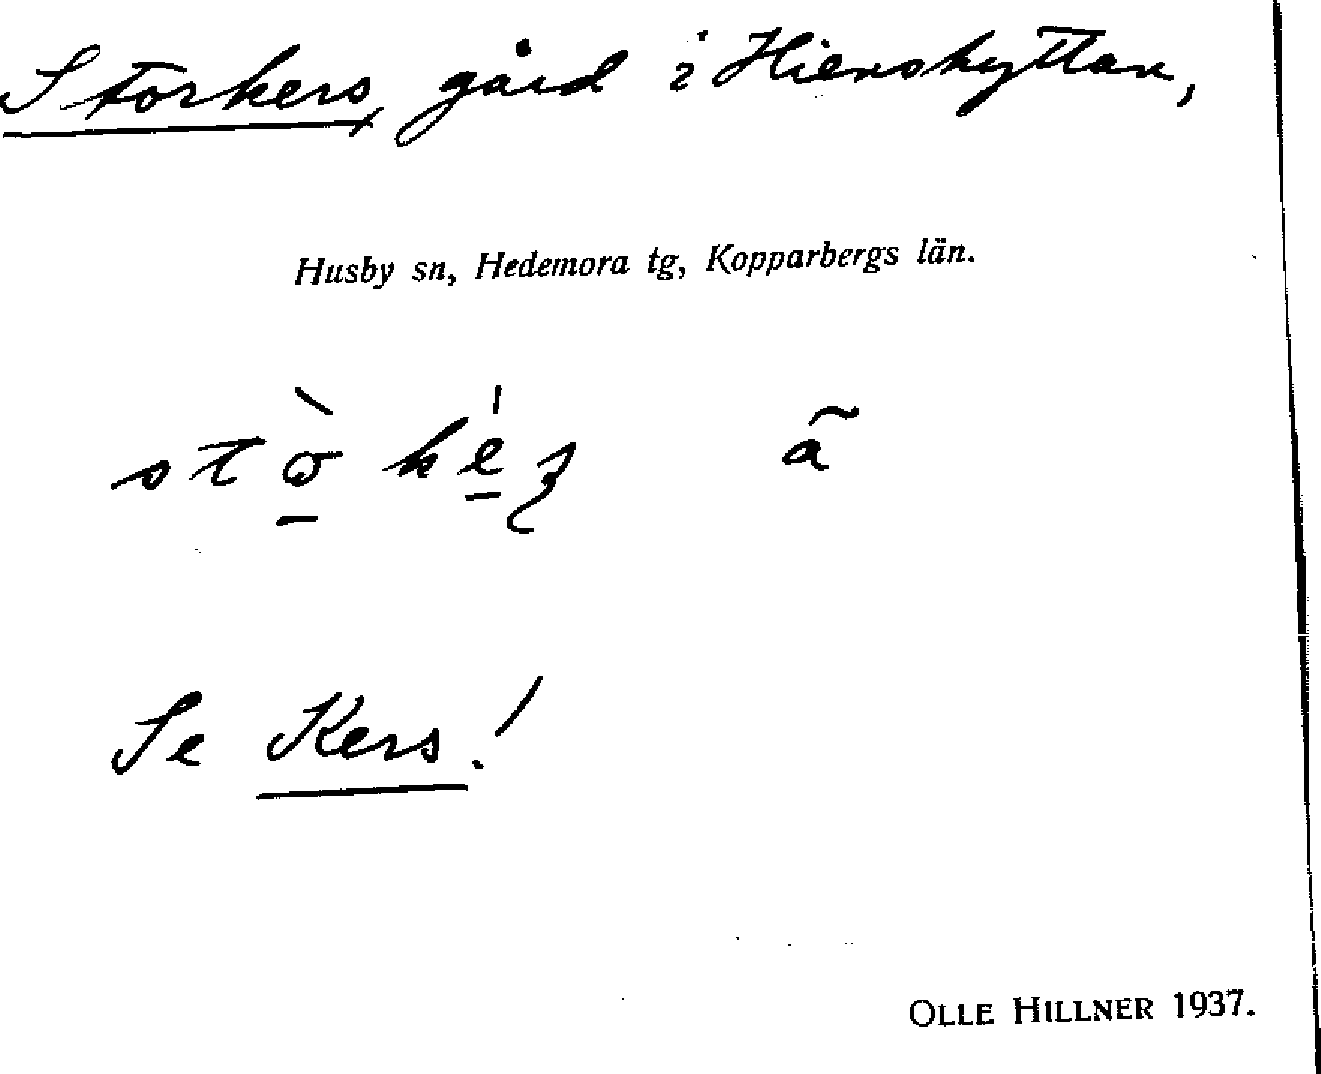 Storkers, gård i Hienshyttan,
Husby sn, Hedemora tg, Kopparbergs län.
Se Kers!
OLLE HILLNER 1937.